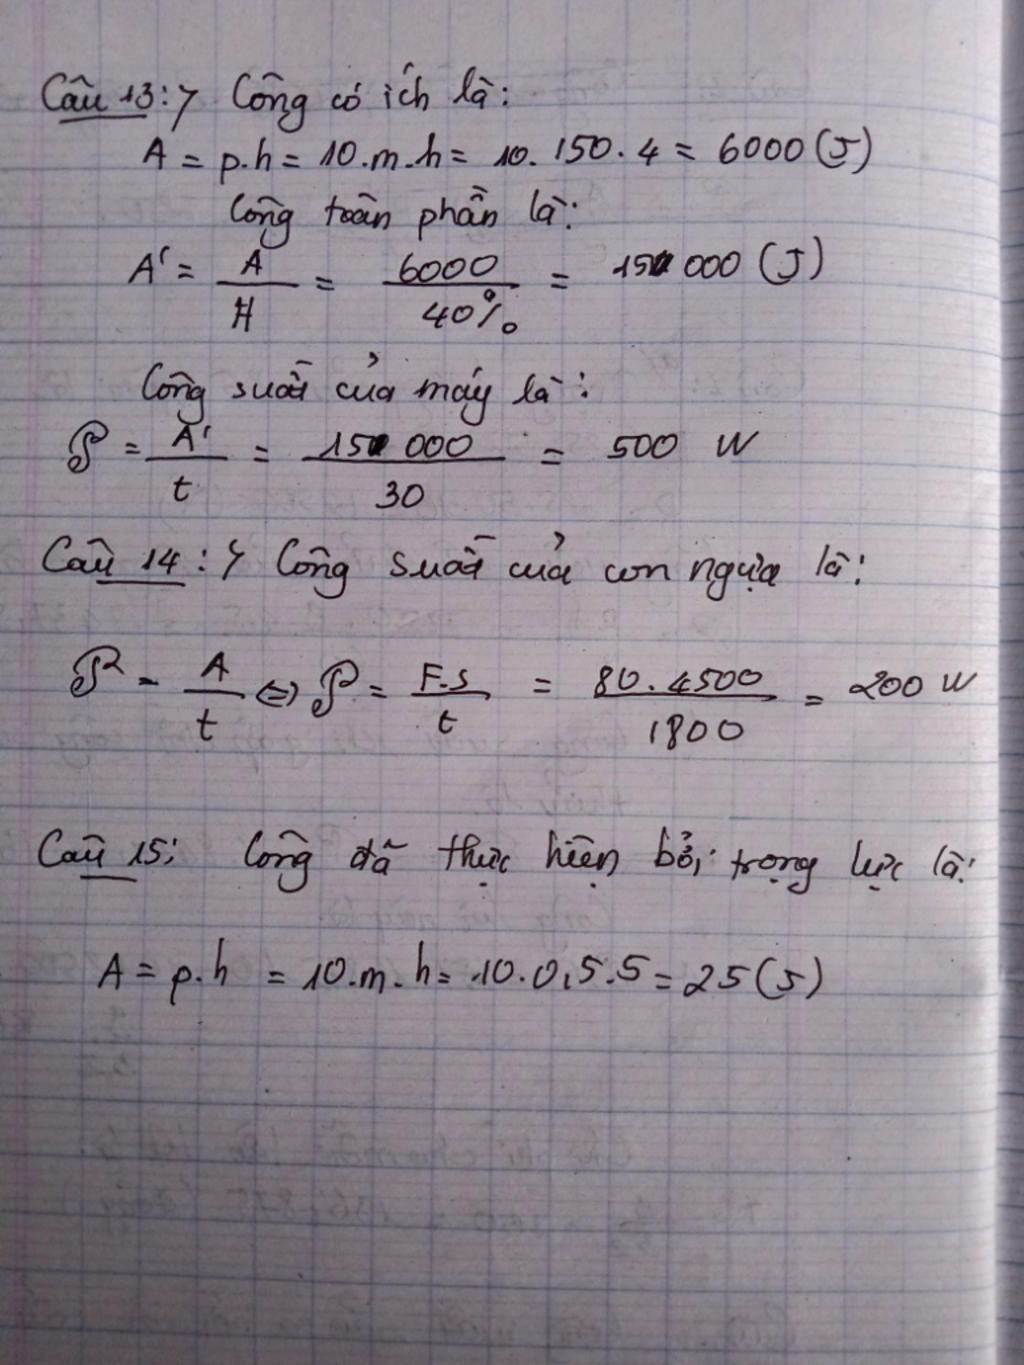 Câu 13: > Công có ích là:
A = p.h = 10.m.h = 10.150.4 = 6000 (J)
Công toàn phần là:
A' = A/H = 6000/40% = 15 000 (J)
Công suất của máy là:
P = A'/t = 15 000/30 = 500 W
Câu 14: > Công suất của con ngựa là:
P = A/t <=> P = F.s/t = 80.4500/1800 = 200 W
Câu 15: Công đã thực hiện bởi trọng lực là:
A = p.h = 10.m.h = 10.0,5.5 = 25 (J)